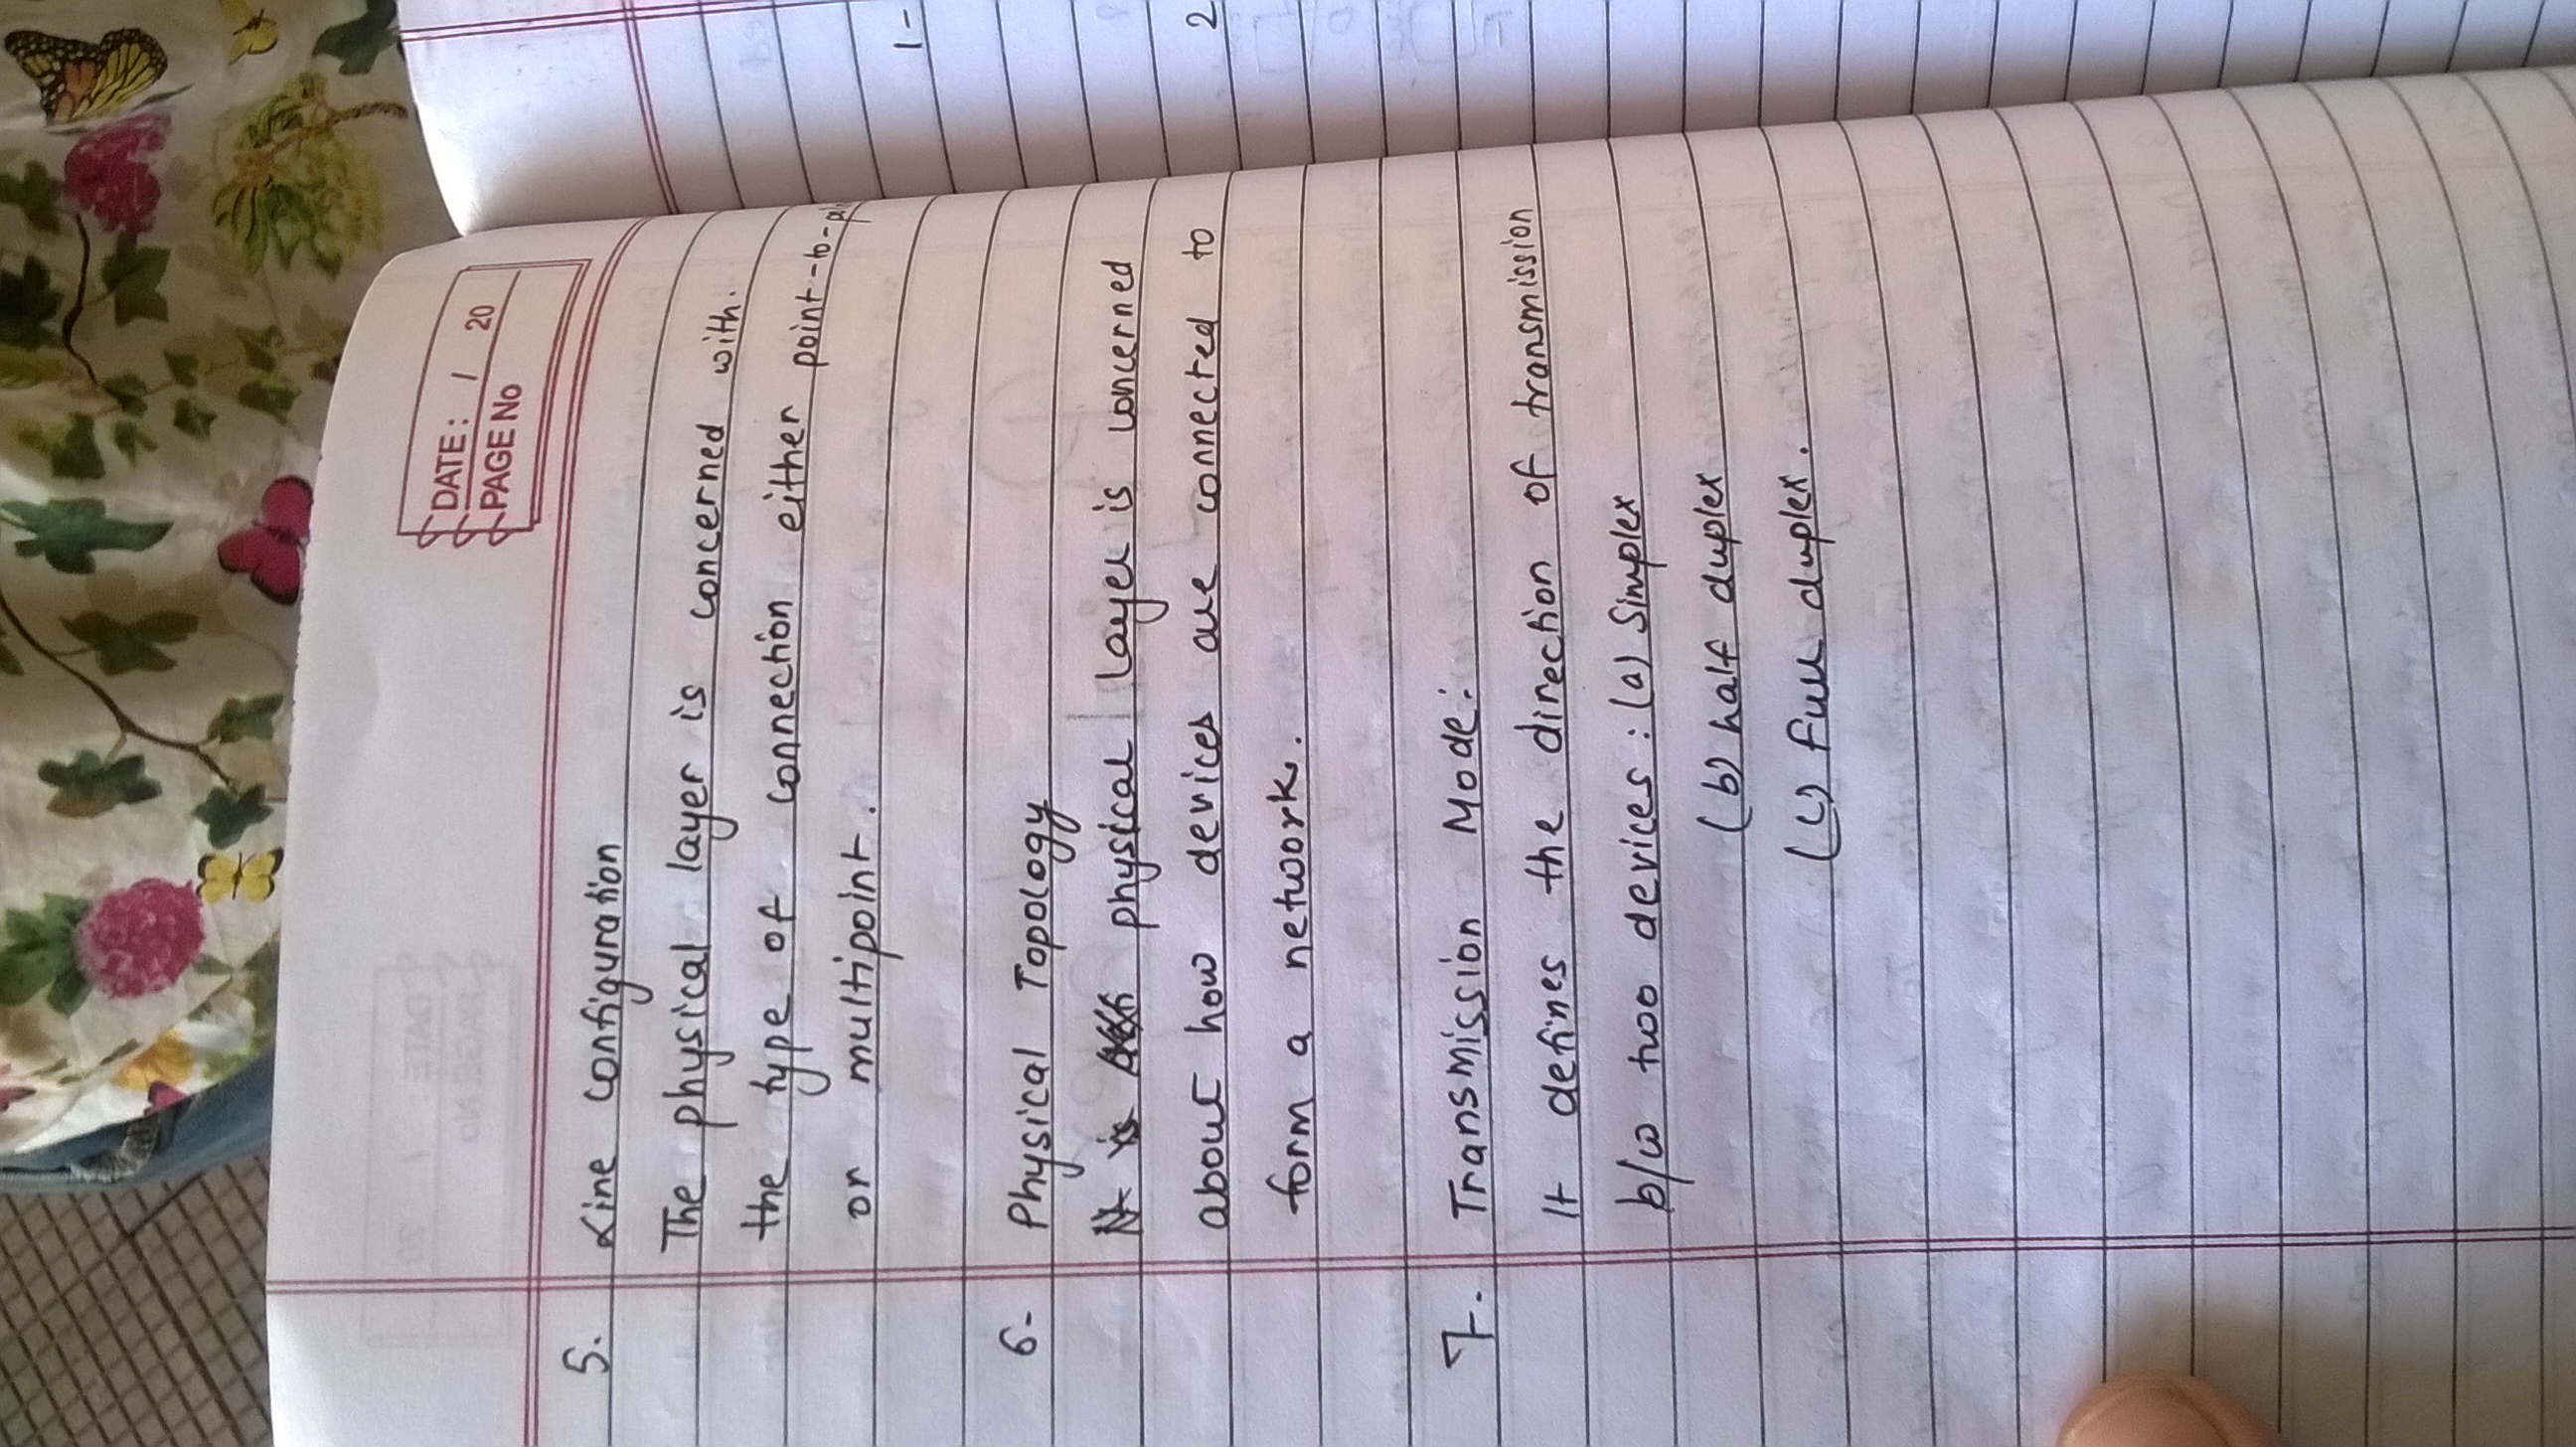 DATE: / 20
PAGE No
5. Line configuration
The physical layer is concerned with.
the type of connection either point-to-
or multipoint.
6- Physical Topology
physical layer is concerned
about how devices are connected to
form a network.
7. Transmission Mode:
It defines the direction of transmission
b/w two devices: (a) Simplex
(b) half duplex
(c) Full duplex.
1-
2